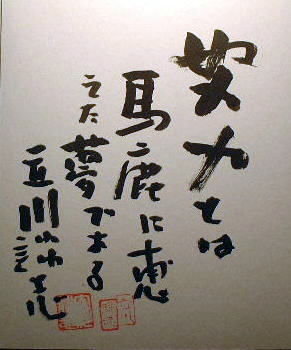 努力とは
馬鹿に恵
えた夢である
立川談志